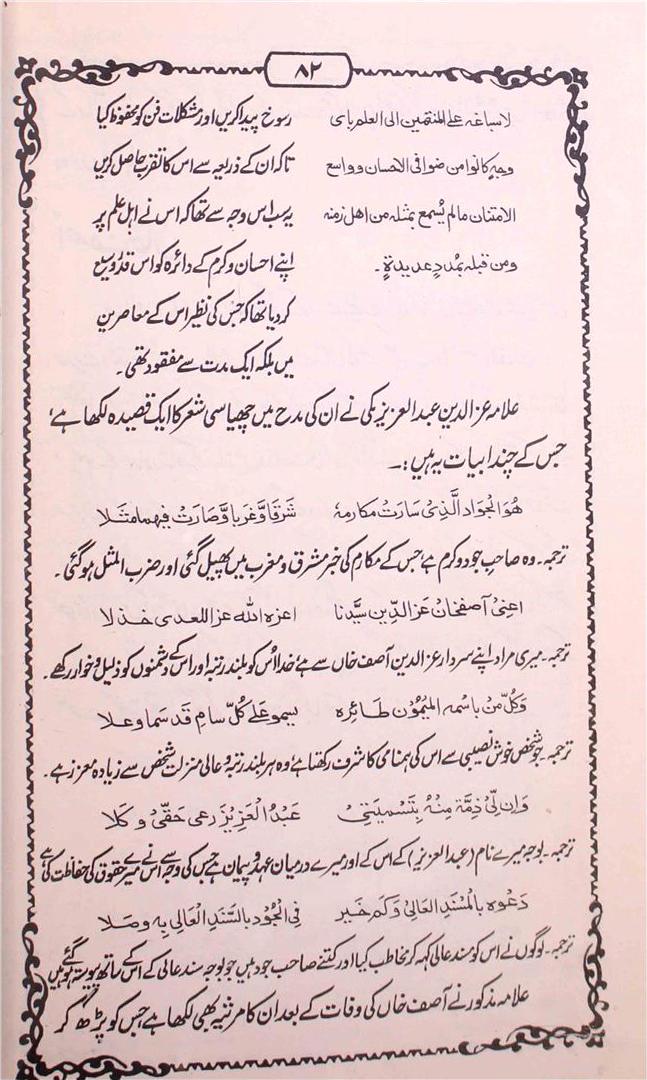 ۸۲
لاسباغہ علی المنتمین الی العلم بای
وجہٍ کانوا من ضوافی الاحسان وواسع
الامتنان مالم یُسمع بمثلہ من اھل زمنہ
ومن قبلہ بمُددٍ عدیدۃٍ۔
رسوخ پیدا کریں اور مشکلات فن کو محفوظ کیا
تاکہ ان کے ذریعہ سے اس کا تقرب حاصل کریں
یہ سب اس وجہ سے تھا کہ اس نے اہل علم پر
اپنے احسان و کرم کے دائرہ کو اس قدر وسیع
کر دیا تھا کہ جس کی نظیر اس کے معاصرین
میں بلکہ ایک مدت سے مفقود تھی۔
علامہ عز الدین عبد العزیز مکی نے ان کی مدح میں چھیاسی شعر کا ایک قصیدہ لکھا ہے،
جس کے چند ابیات یہ ہیں:۔
ھُوَ الجَوَاد الَّذِیْ سَارَتْ مکارمہٗ شَرقًا وَّغَربًا وَّصَارَتْ فیھما مثلا
ترجمہ۔ وہ صاحب جود و کرم ہے، جس کے مکارم کی خبر مشرق و مغرب میں پھیل گئی اور ضرب المثل ہو گئی۔
اعنیْ آصفخان عَزَالدِّین سَیّدنا اعزہ اللہ عز اللعدی خذلا
ترجمہ۔ میری مراد اپنے سردار عز الدین آصف خاں سے ہے، خدا اُس کو بلند رتبہ اور اس کے دشمنوں کو ذلیل و خوار رکھے۔
وَکُلّ مَنْ باسمہ المَیْمُوْن طَائرہ یسمو عَلٰے کُلّ سامٍ قَد سما وعلا
ترجمہ۔ جو شخص خوش نصیبی سے اس کی ہمنامی کا شرف رکھتا ہے، وہ ہر بلند رتبہ و عالی منزلت شخص سے زیادہ معزز ہے۔
وَاِن لِیْ ذِمَّۃ مِنْہُ بِتَسْمِیَتِیْ عَبْدُ الْعَزِیْز رَعٰی حَقِّیْ وکلا
ترجمہ۔ بوجہ میرے نام (عبد العزیز) کے اس کے اور میرے درمیان عہد و پیمان ہے جس کی وجہ سے اس نے میرے حقوق کی حفاظت کی ہے
دَعْوہ بالْمُسْنَد العَالِیْ وَکَم خیر فِی الْجُوْد بالسَّنَدِ الْعَالِی بِہٖ وصلا
ترجمہ۔ لوگوں نے اس کو مسند عالی کہہ کر مخاطب کیا اور کتنے صاحب جود ہیں جو بوجہ سند عالی کے اس کے ساتھ پیوستہ ہو گئے ہیں
علامہ مذکور نے آصف خاں کی وفات کے بعد ان کا مرثیہ بھی لکھا ہے جس کو پڑھ کر